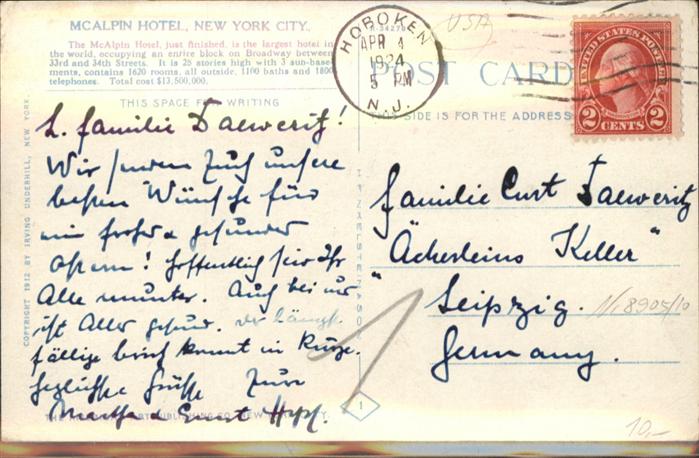 MCALPIN HOTEL, NEW YORK CITY.
The McAlpin Hotel, just finished, is the largest hotel in
the world, occupying an entire block on Broadway between
33rd and 34th Streets. It is 25 stories high with 3 sub-base-
ments, contains 1620 rooms, all outside, 1100 baths and 1800
telephones. Total cost $13,500,000.
HOBOKEN
APR 4
1924
5 PM
N.J.
USA
POST CARD
UNITED STATES POSTAGE
2 CENTS 2
THIS SPACE FOR WRITING
THIS SIDE IS FOR THE ADDRESS
COPYRIGHT 1912 BY IRVING UNDERHILL, NEW YORK
L. Familie Taeweritz!
Wir senden Euch unsere
besten Wünsche für
ein frohes & gesundes
Ostern! Hoffentlich seid Ihr
Alle munter. Auch bei uns
ist Alles gesund. Der längst
fällige Brief kommt in Kürze.
Herzlichste Grüsse Eure
Martha & Curt
Familie Curt Taeweritz
"Äckerleins Keller"
Leipzig.
Germany.
1
10,-